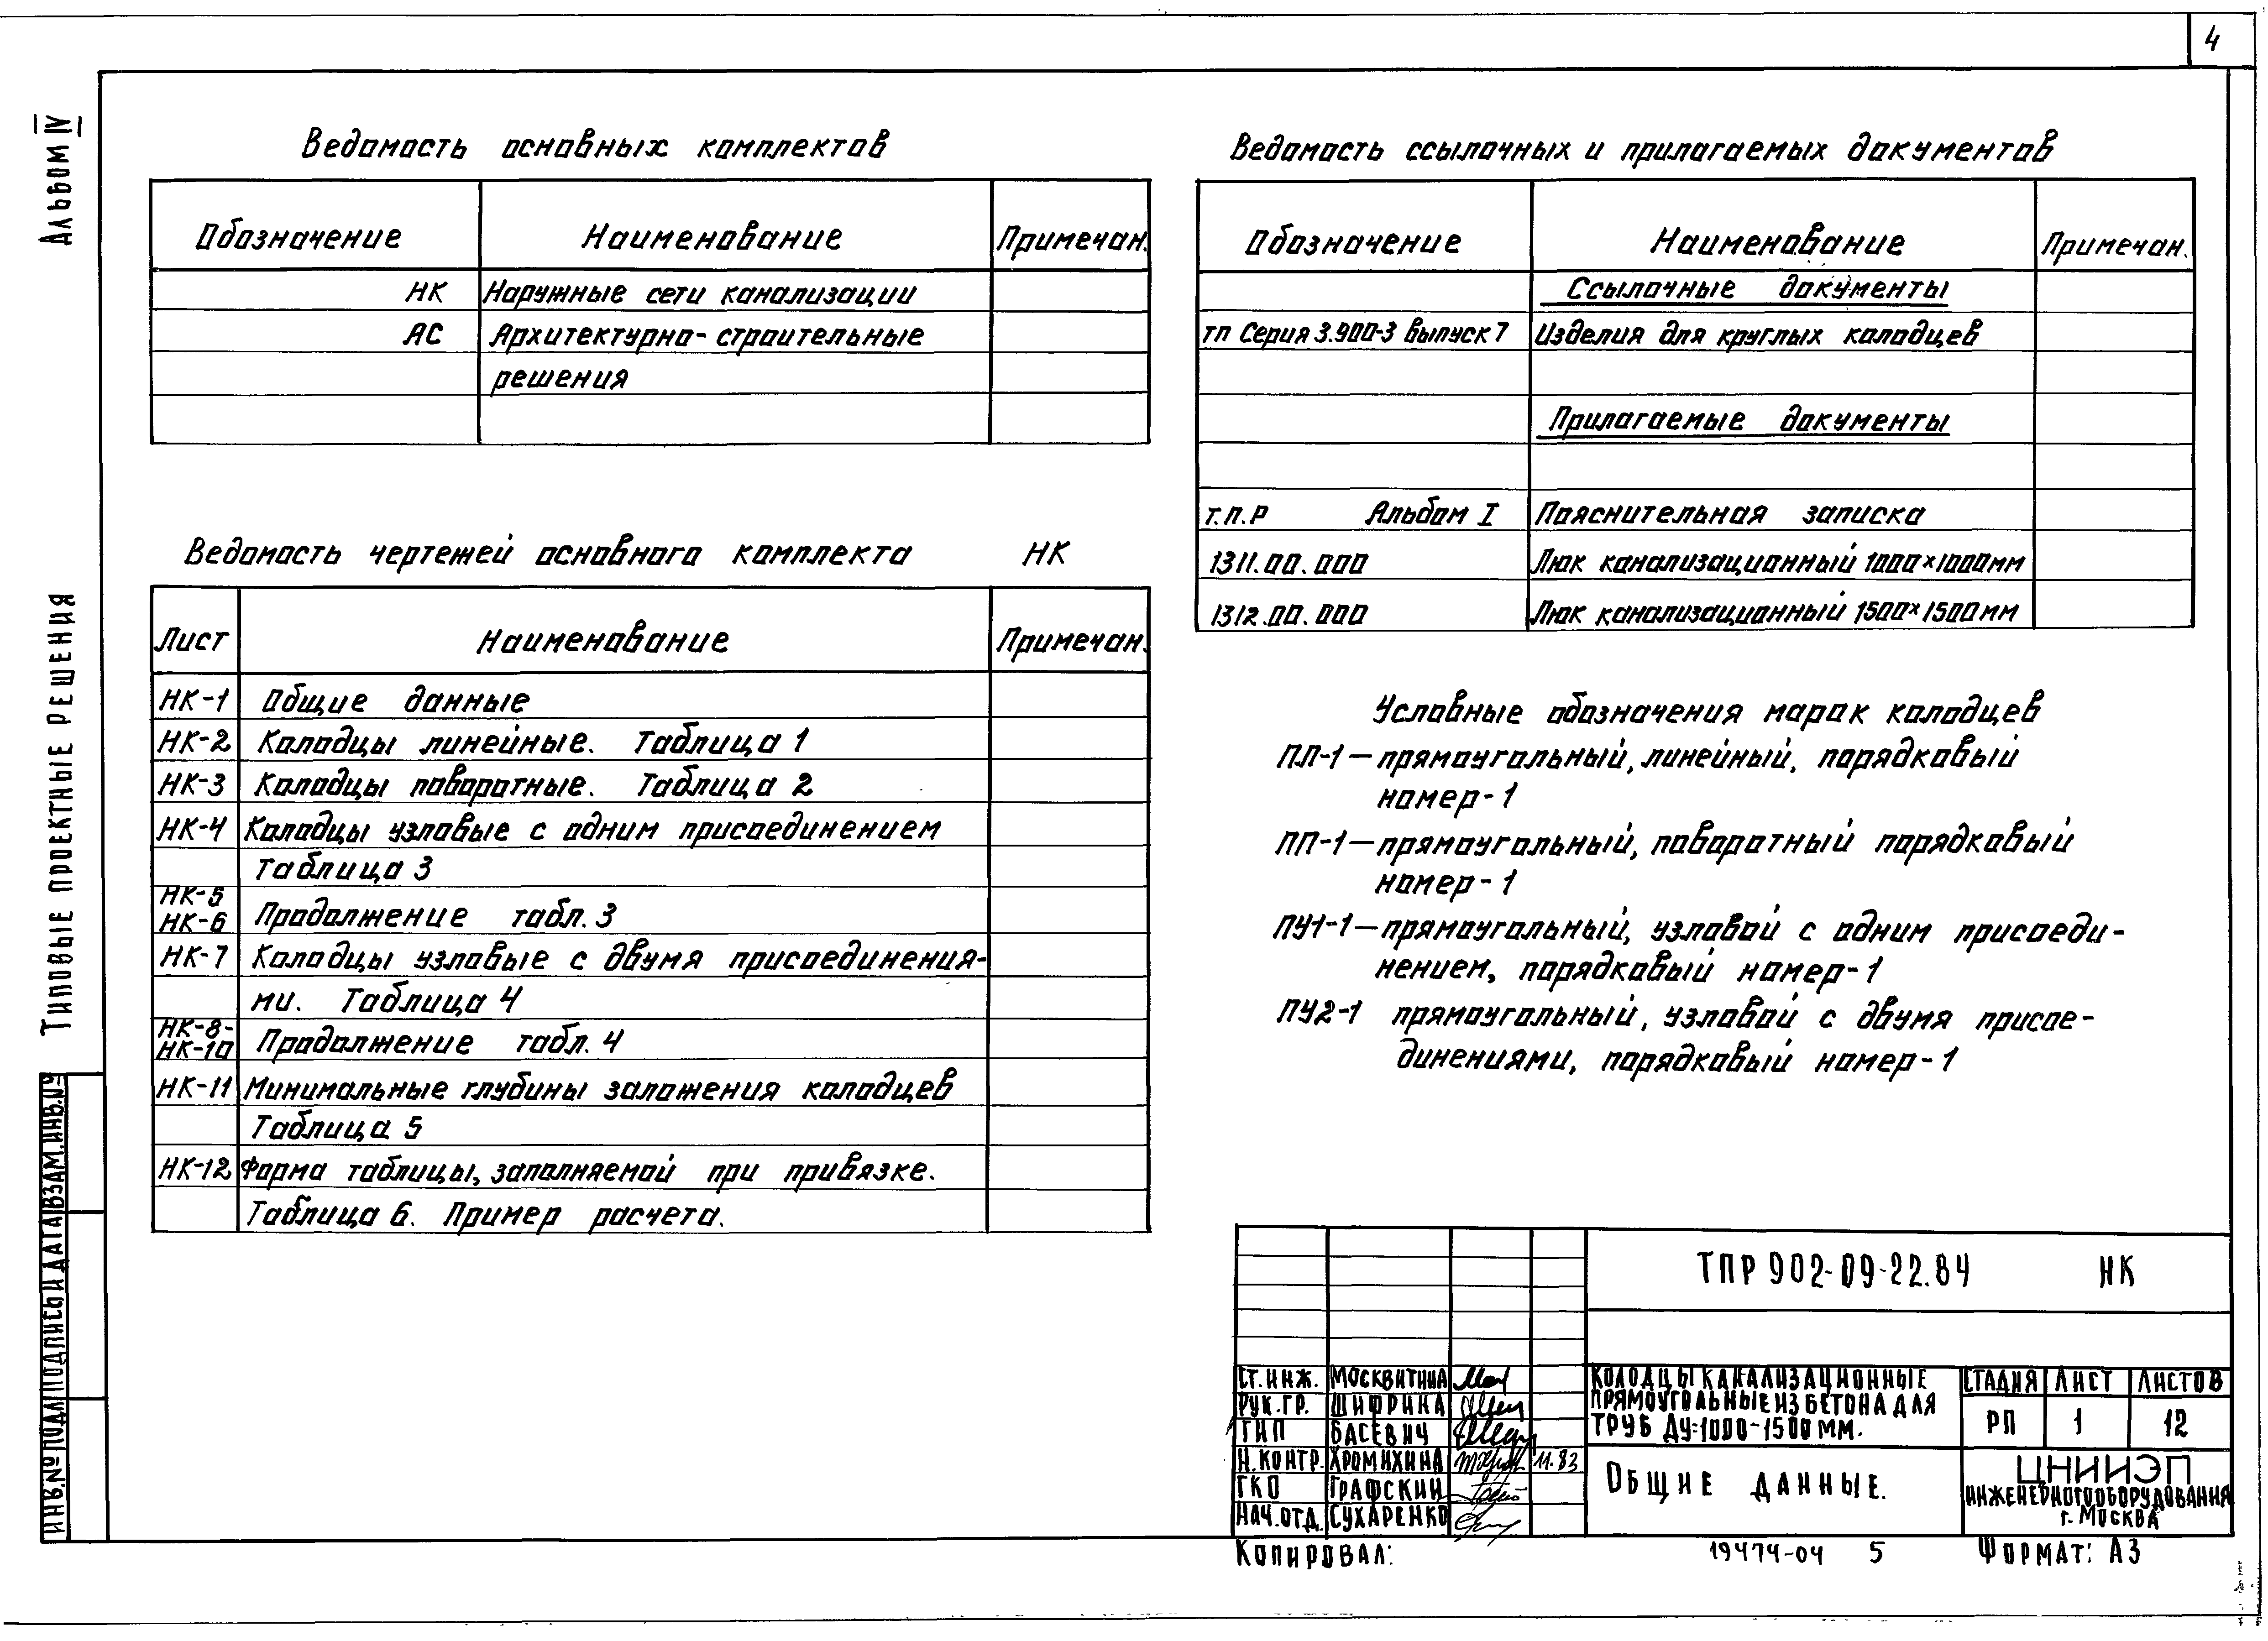 4
Альбом IV
Типовые проектные решения
Ведомость основных комплектов
Обозначение Наименование Примечан.
НК Наружные сети канализации
АС Архитектурно-строительные
решения
Ведомость чертежей основного комплекта НК
Лист Наименование Примечан.
НК-1 Общие данные
НК-2 Колодцы линейные. Таблица 1
НК-3 Колодцы поворотные. Таблица 2
НК-4 Колодцы узловые с одним присоединением
Таблица 3
НК-5
НК-6 Продолжение табл. 3
НК-7 Колодцы узловые с двумя присоединения-
ми. Таблица 4
НК-8-
НК-10 Продолжение табл. 4
НК-11 Минимальные глубины заложения колодцев
Таблица 5
НК-12 Форма таблицы, заполняемой при привязке.
Таблица 6. Пример расчета.
Ведомость ссылочных и прилагаемых документов
Обозначение Наименование Примечан.
Ссылочные документы
тп Серия 3.900-3 выпуск 7 Изделия для круглых колодцев
Прилагаемые документы
т.п.р Альбом I Пояснительная записка
1311.00.000 Люк канализационный 1000×1000мм
1312.00.000 Люк канализационный 1500×1500мм
Условные обозначения марок колодцев
ПЛ-1 — прямоугольный, линейный, порядковый
номер-1
ПП-1 — прямоугольный, поворотный порядковый
номер-1
ПУ1-1 — прямоугольный, узловой с одним присоеди-
нением, порядковый номер-1
ПУ2-1 прямоугольный, узловой с двумя присое-
динениями, порядковый номер-1
ТПР 902-09-22.84 НК
Ст.инж. Москвитина
Рук.гр. Шифрина
ГИП Басевич
Н.контр. Хромихина 11.83
ГКО Графский
Нач.отд. Сухаренко
Колодцы канализационные
прямоугольные из бетона для
труб Ду=1000-1500 мм.
Стадия Лист Листов
РП 1 12
Общие данные.
ЦНИИЭП
инженерного оборудования
г. Москва
Копировал:
19474-04 5
Формат: А3
Инв.№ подл. Подпись и дата Взам.инв.№